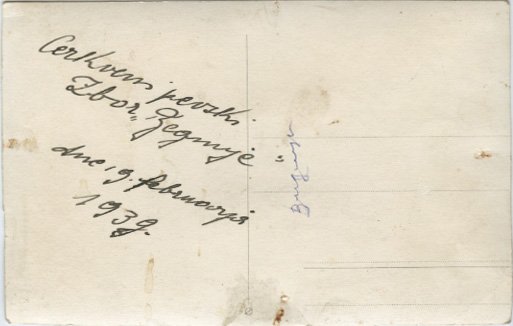 Cerkveni pevski
Zbor "Žegnije"
dne 19. februarja
1939.